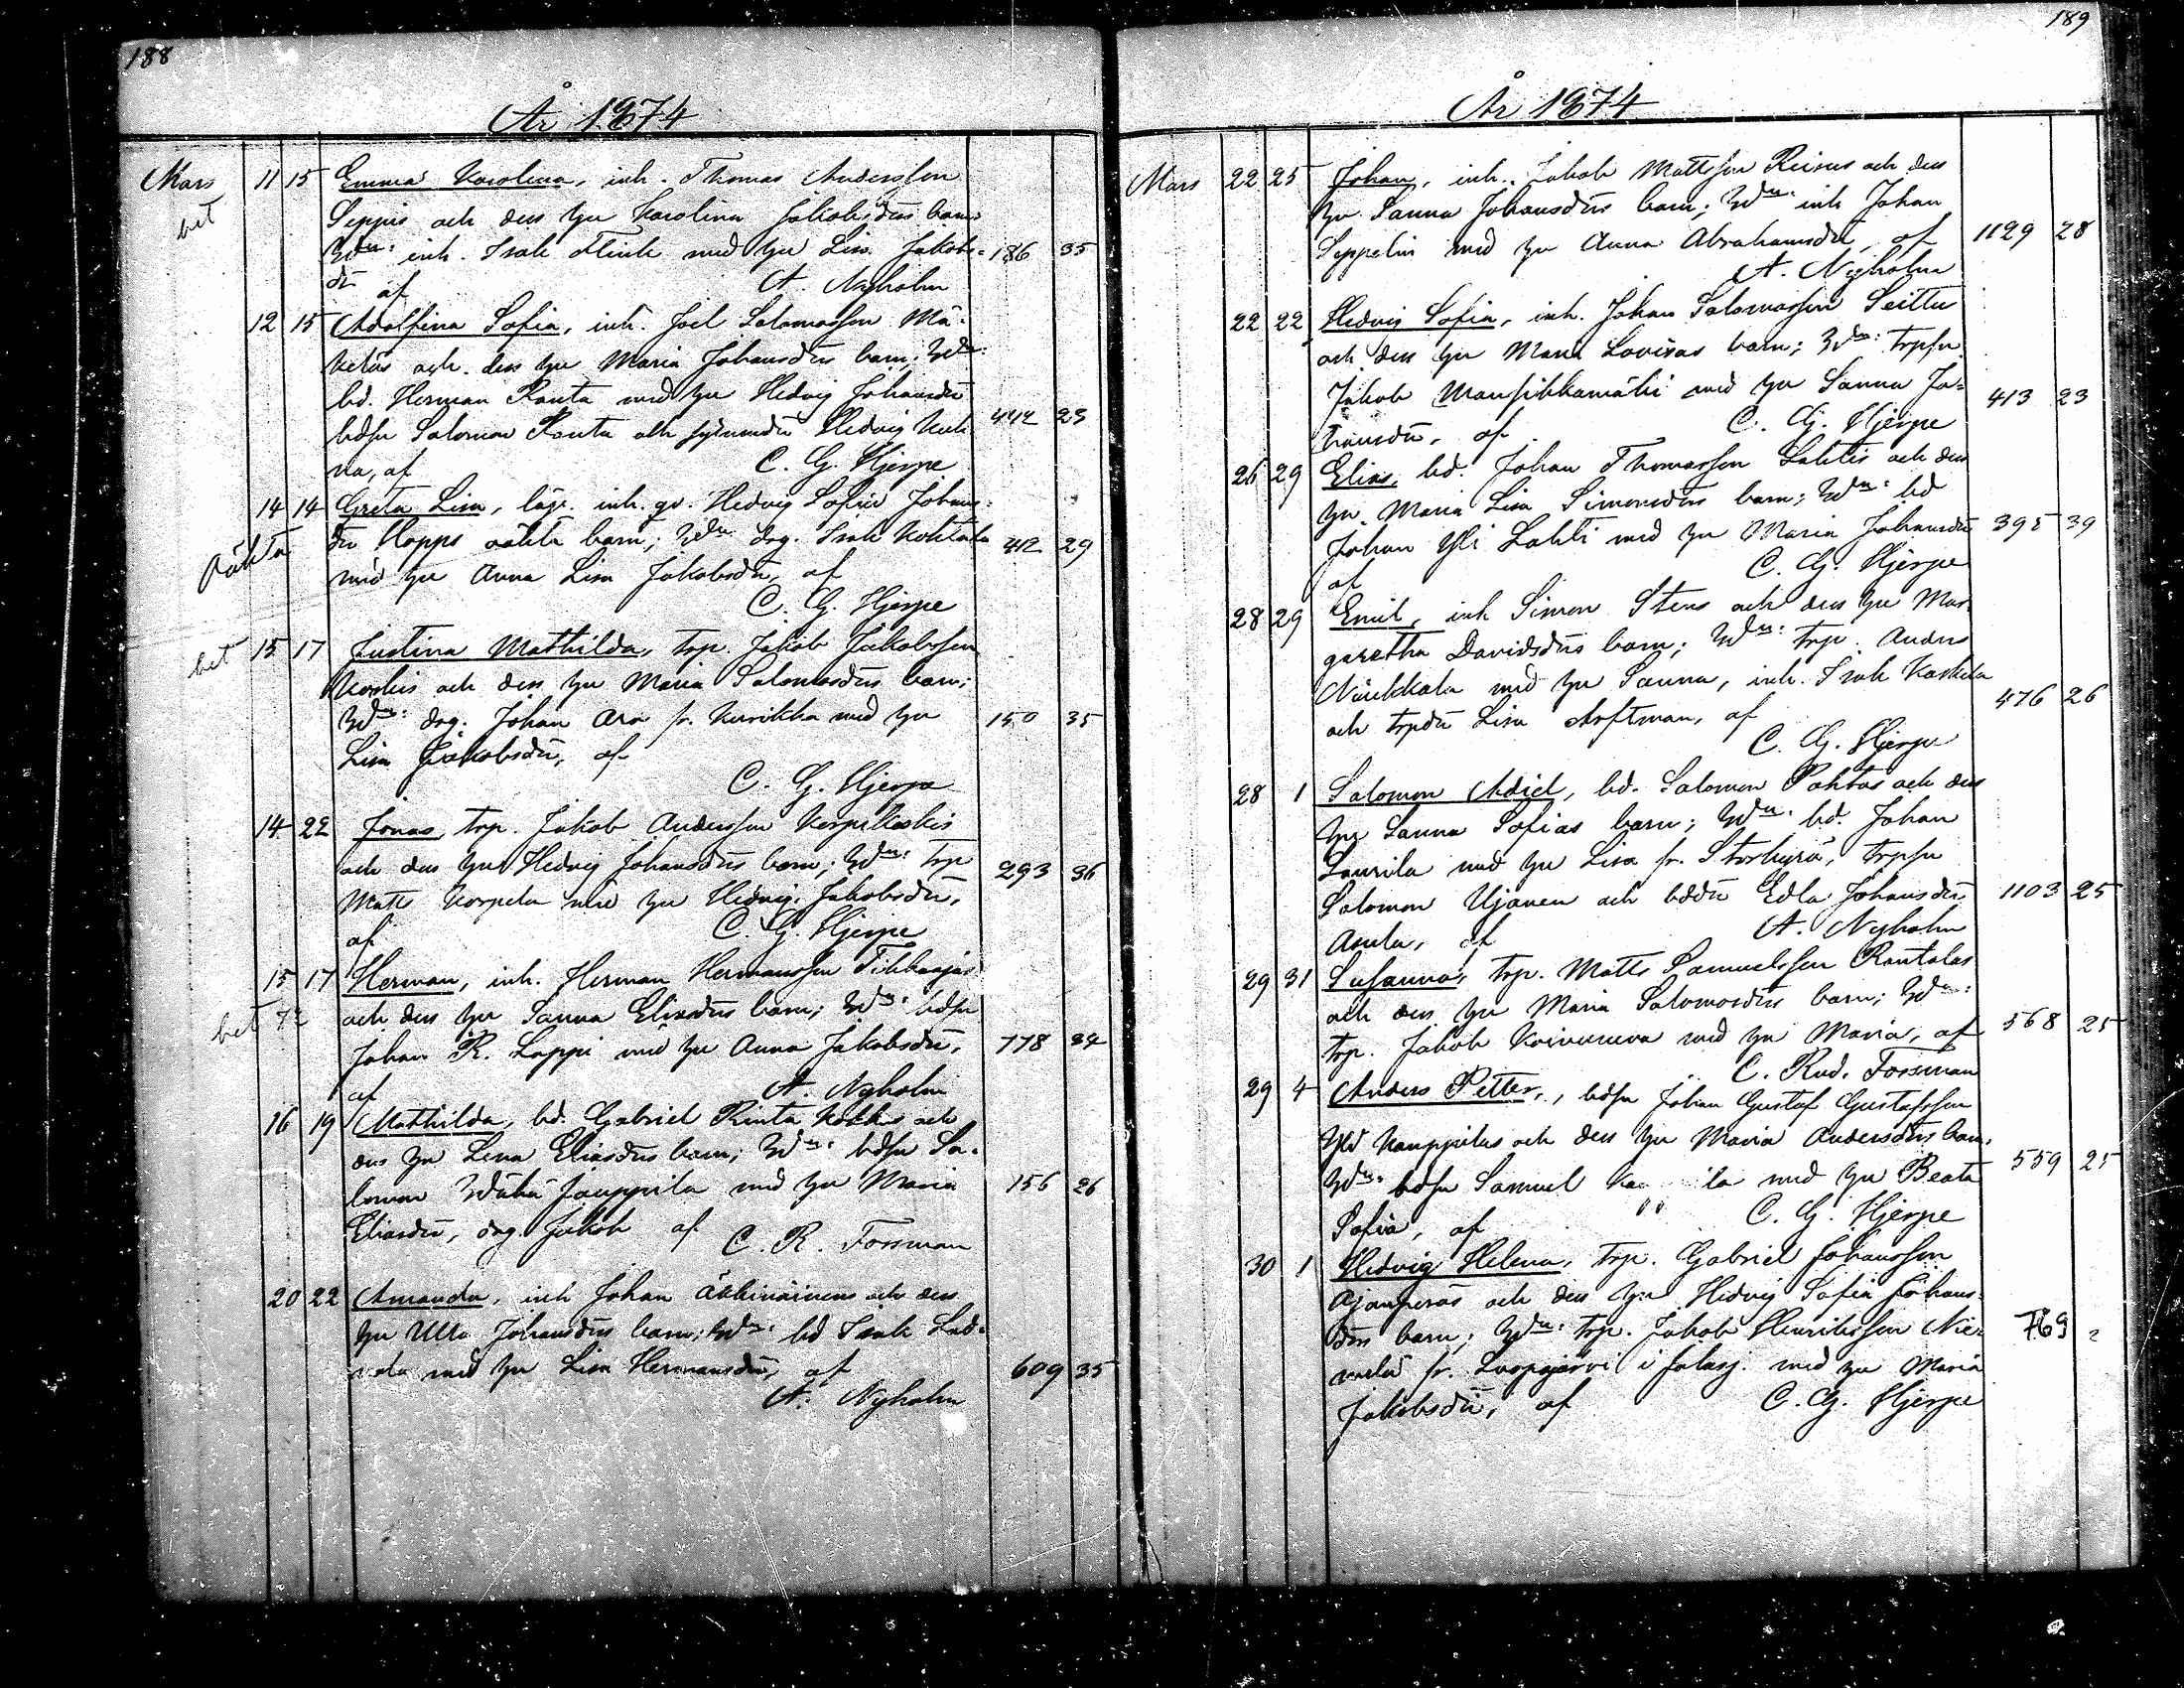 188
År 1874
Mars 11 15 Emma Karolina, inh. Thomas Andersson
bet Seppis och dess hu Karolina Jakobsdrs barn
Wdn: inh. Isak Flink med hu Lisa Jakobs= 186 35
dr af A. Nyholm
12 15 Adolfina Sofia, inh. Joel Salomonsson Mä-
keläs och dess hu Maria Johansdrs barn; Wdn:
bd. Herman Ranta med hu Hedvig Johansdr
bdsn Salomon Ranta och Hedvig 442 23
na, af C. G. Hjerpe
14 14 Greta Lisa, lägr. inh. qv. Hedvig Sofia Johans-
oäkta dr Hopps oäkta barn; Wdn drg. Isak Kohtala 412 29
med hu Anna Lisa Jakobsdr, af
C. G. Hjerpe
bet 15 17 Justina Mathilda, trp. Jakob Jakobsson
Koskis och dess hu Maria Salomonsdrs barn;
Wdn: drg. Johan Aro fr. Kurikka med hu 150 35
Lisa Jakobsdr, af
C. G. Hjerpe
14 22 Jonas trp. Jakob Andersson Korpikoskis
och dess hu Hedvig Johansdrs barn; Wdn: trp 293 36
Matts Korpela med hu Hedvig Jakobsdr,
af C. G. Hjerpe
15 17 Herman, inh. Herman Hermansson
bet och dess hu Sanna Eliasdrs barn; Wdn: bdsn
Johan R. Loppi med hu Anna Jakobsdr, 778 34
af A. Nyholm
16 19 Mathilda, bd. Gabriel Rinta och
dess hu Lena Eliasdrs barn; Wdn: bdsn Sa-
lomon Wähä Jauppila med hu Maria 156 26
Eliasdr, drg Jakob af C. R. Forsman
20 22 Amanda, inh Johan Äkkinäinens och dess
hu Ulla Johansdrs barn; Wdn: bd Isak
med hu Lisa Hermansdr, af 609 35
A. Nyholm
189
År 1874
Mars 22 25 Johan, inh. Jakob Mattsson Reinis och dess
hu Sanna Johansdrs barn; Wdn: inh Johan
Seppelin med hu Anna Abrahamsdr, af 1129 28
A. Nyholm
22 22 Hedvig Sofia, inh. Johan Salomonsson Seittu
och dess hu Maria Lovisas barn; Wdn: trpsn
Jakob Mansikkamäki med hu Sanna Jo= 413 23
hansdr, af C. G. Hjerpe
26 29 Elias, bd. Johan Thomasson Lahtis och dess
hu Maria Lisa Simonsdrs barn; Wdn: bd
Johan Yli Lahti med hu Maria Johansdr 395 39
af C. G. Hjerpe
28 29 Emil, inh Simon Stens och dess hu Mar-
garetha Davidsdrs barn; Wdn: trp. Anders
med hu Sanna, inh. Isak Koskela 476 26
och trpdr Lisa, af
C. G. Hjerpe
28 1 Salomon Adiel, bd. Salomon Pahtas och dess
hu Sanna Sofias barn; Wdn: bd. Johan
Laurila med hu Lisa fr. Storkyrö, trpsn
Salomon Ujanen och bddr Edla Johansdr 1103 25
Asula, af A. Nyholm
29 31 Susanna, trp. Matts Samuelsson Rantalas
och dess hu Maria Salomonsdrs barn; Wdn:
trp. Jakob Koivuneva med hu Maria, af 568 25
C. Rud. Forsman
29 4 Anders Petter, bdsn Johan Gustaf Gustafsson
Yli Kauppilas och dess hu Maria Andersdrs barn.
Wdn: bdsn Samuel med hu Beata 559 25
Sofia, af C. G. Hjerpe
30 1 Hedvig Helena, trp. Gabriel Johansson
och dess hu Hedvig Sofia Johans-
drs barn; Wdn: trp. Jakob Henriksson Nie- 769
melä fr. Luopajärvi i Jalasj. med hu Maria
Jakobsdr, af C. G. Hjerpe